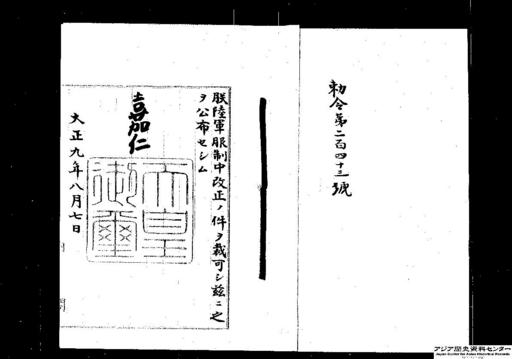 勅令第二百四十三號
朕陸軍服制中改正ノ件ヲ裁可シ茲ニ之
ヲ公布セシム
嘉仁
天皇
御璽
大正九年八月七日
アジア歴史資料センター
Japan Center for Asian Historical Records